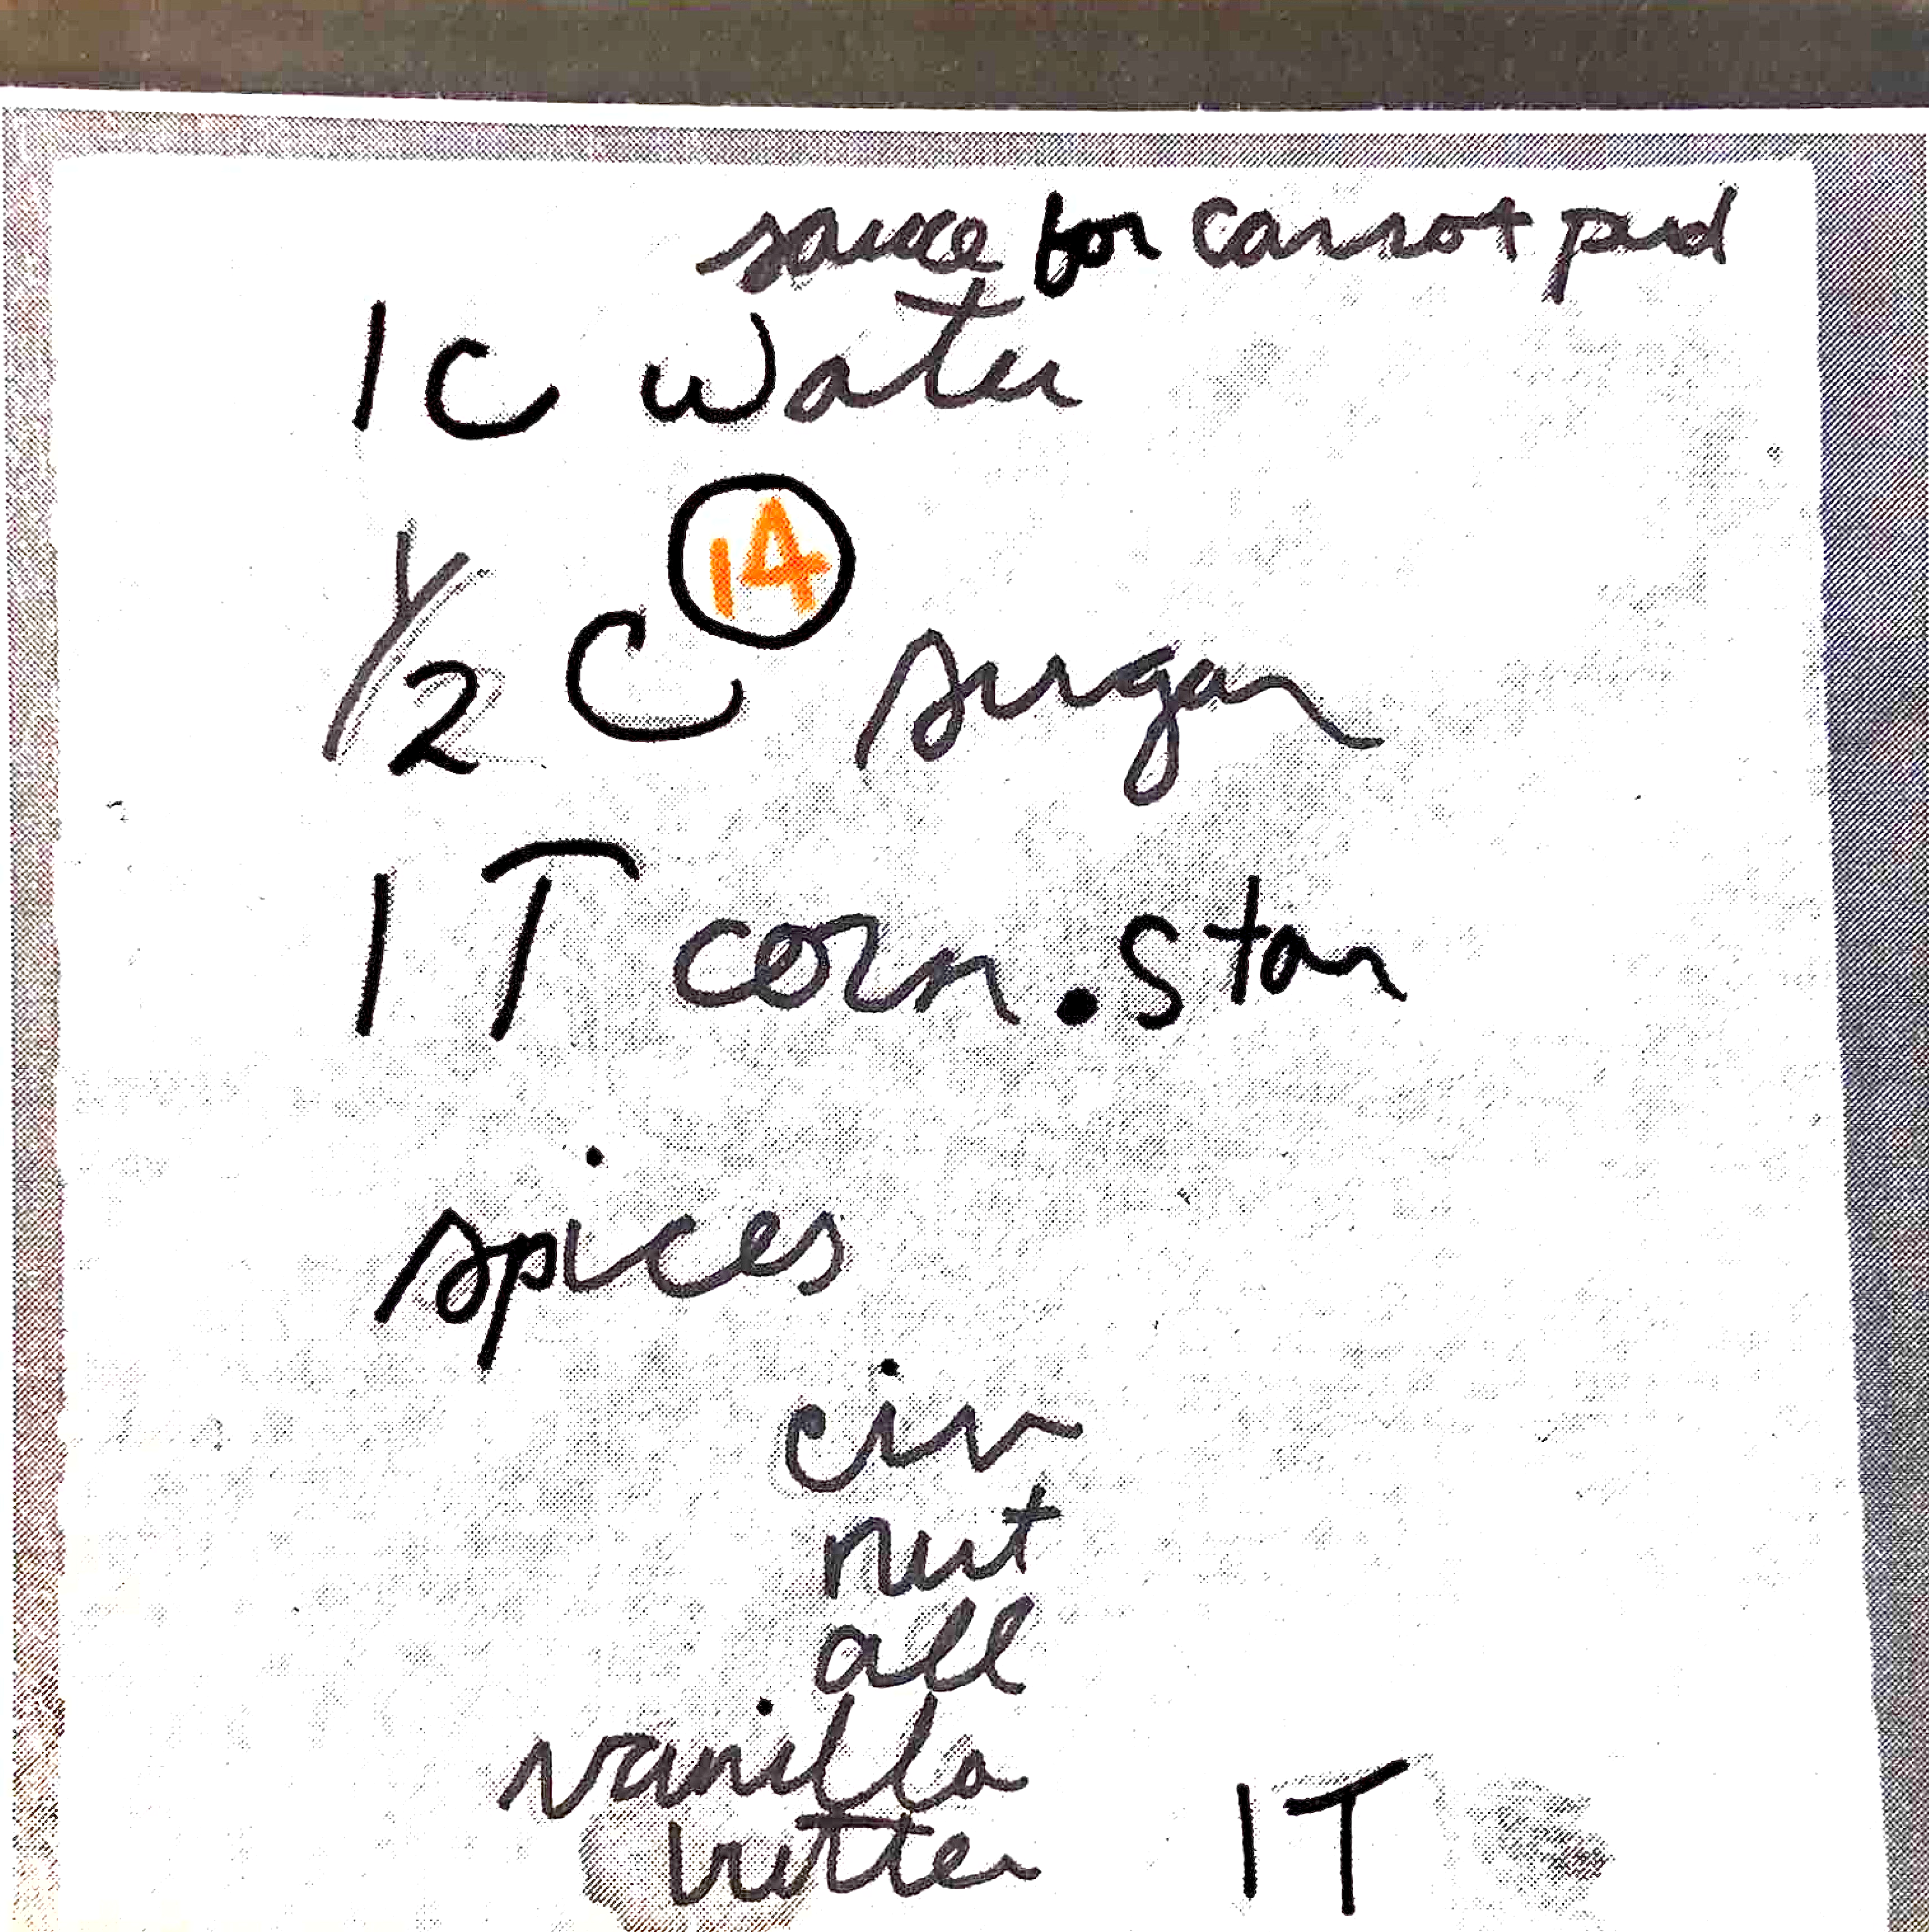 sauce for carrot pud
1 C Water
14
1/2 C sugar
1 T corn.star
spices
cin
nut
all
vanilla
butter 1T